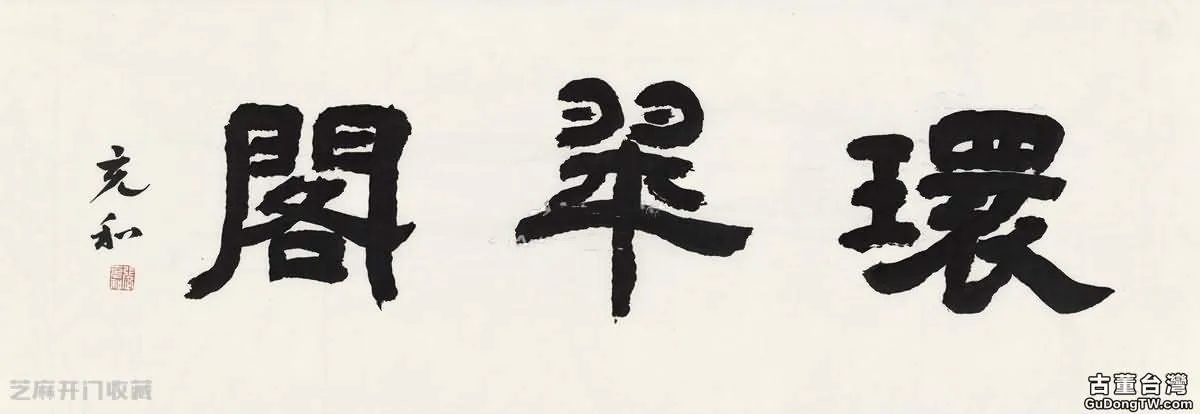 環翠閣
充和
芝麻开门收藏
古董台灣
GuDongTW.com